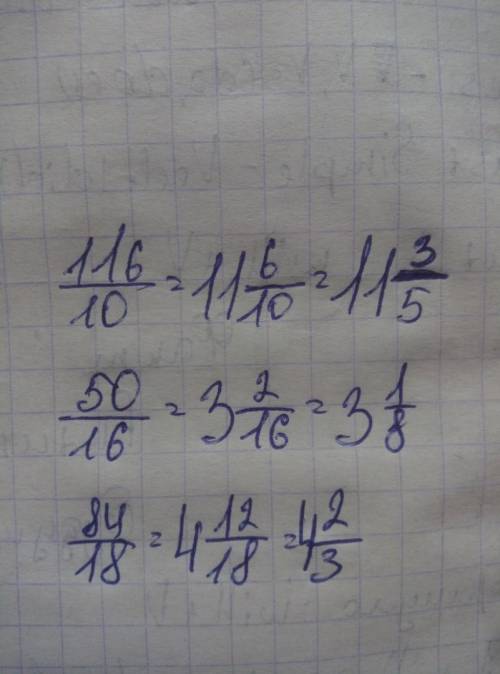 116/10 = 11 6/10 = 11 3/5
50/16 = 3 2/16 = 3 1/8
84/18 = 4 12/18 = 4 2/3